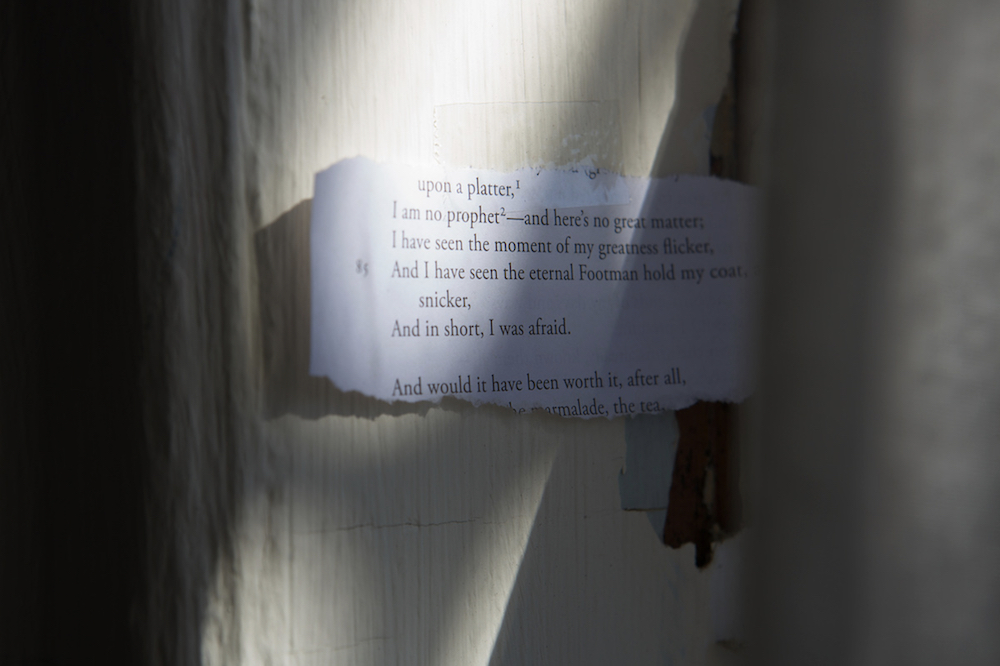 upon a platter,¹
I am no prophet²—and here's no great matter;
I have seen the moment of my greatness flicker,
85 And I have seen the eternal Footman hold my coat,
snicker,
And in short, I was afraid.
And would it have been worth it, after all,
marmalade, the tea,